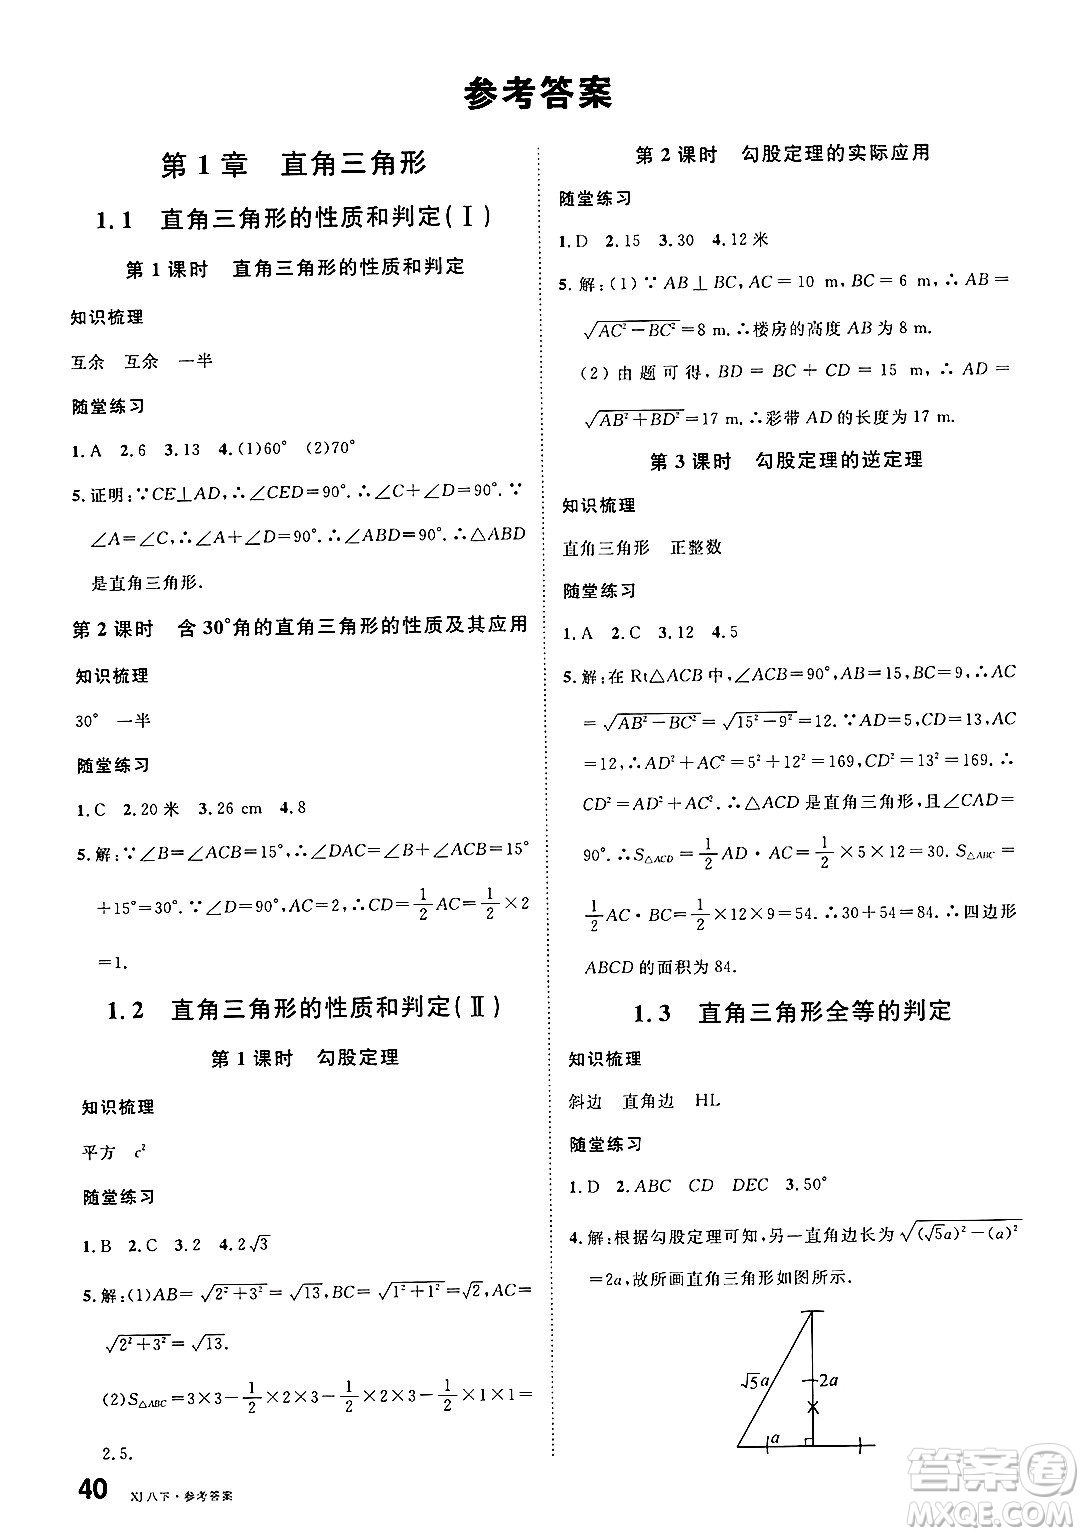 参考答案
第1章 直角三角形
1.1 直角三角形的性质和判定(Ⅰ)
第1课时 直角三角形的性质和判定
知识梳理
互余 互余 一半
随堂练习
1.A 2.6 3.13 4.(1)60° (2)70°
5.证明:∵CE⊥AD,∴∠CED=90°.∴∠C+∠D=90°.∵
∠A=∠C,∴∠A+∠D=90°.∴∠ABD=90°.∴△ABD
是直角三角形.
第2课时 含30°角的直角三角形的性质及其应用
知识梳理
30° 一半
随堂练习
1.C 2.20米 3.26 cm 4.8
5.解:∵∠B=∠ACB=15°,∴∠DAC=∠B+∠ACB=15°
+15°=30°.∵∠D=90°,AC=2,∴CD=1/2AC=1/2×2
=1.
1.2 直角三角形的性质和判定(Ⅱ)
第1课时 勾股定理
知识梳理
平方 c²
随堂练习
1.B 2.C 3.2 4.2√3
5.解:(1)AB=√(2²+3²)=√13,BC=√(1²+1²)=√2,AC=
√(2²+3²)=√13.
(2)S△ABC=3×3-1/2×2×3-1/2×2×3-1/2×1×1=
2.5.
40 XJ八下·参考答案
第2课时 勾股定理的实际应用
随堂练习
1.D 2.15 3.30 4.12米
5.解:(1)∵AB⊥BC,AC=10 m,BC=6 m,∴AB=
√(AC²-BC²)=8 m.∴楼房的高度AB为8 m.
(2)由题可得,BD=BC+CD=15 m,∴AD=
√(AB²+BD²)=17 m.∴彩带AD的长度为17 m.
第3课时 勾股定理的逆定理
知识梳理
直角三角形 正整数
随堂练习
1.A 2.C 3.12 4.5
5.解:在Rt△ACB中,∠ACB=90°,AB=15,BC=9,∴AC
=√(AB²-BC²)=√(15²-9²)=12.∵AD=5,CD=13,AC
=12,∴AD²+AC²=5²+12²=13²=CD².即
CD²=AD²+AC².∴△ACD是直角三角形,且∠CAD=
90°.∴S△ACD=1/2AD·AC=1/2×5×12=30.S△ABC=
1/2AC·BC=1/2×12×9=54.∴30+54=84.∴四边形
ABCD的面积为84.
1.3 直角三角形全等的判定
知识梳理
斜边 直角边 HL
随堂练习
1.D 2.ABC CD DEC 3.50°
4.解:根据勾股定理可知,另一直角边长为√((√5a)²-(a)²)
=2a,故所画直角三角形如图所示.
√5a 2a
a
答案圈
MXQE.COM